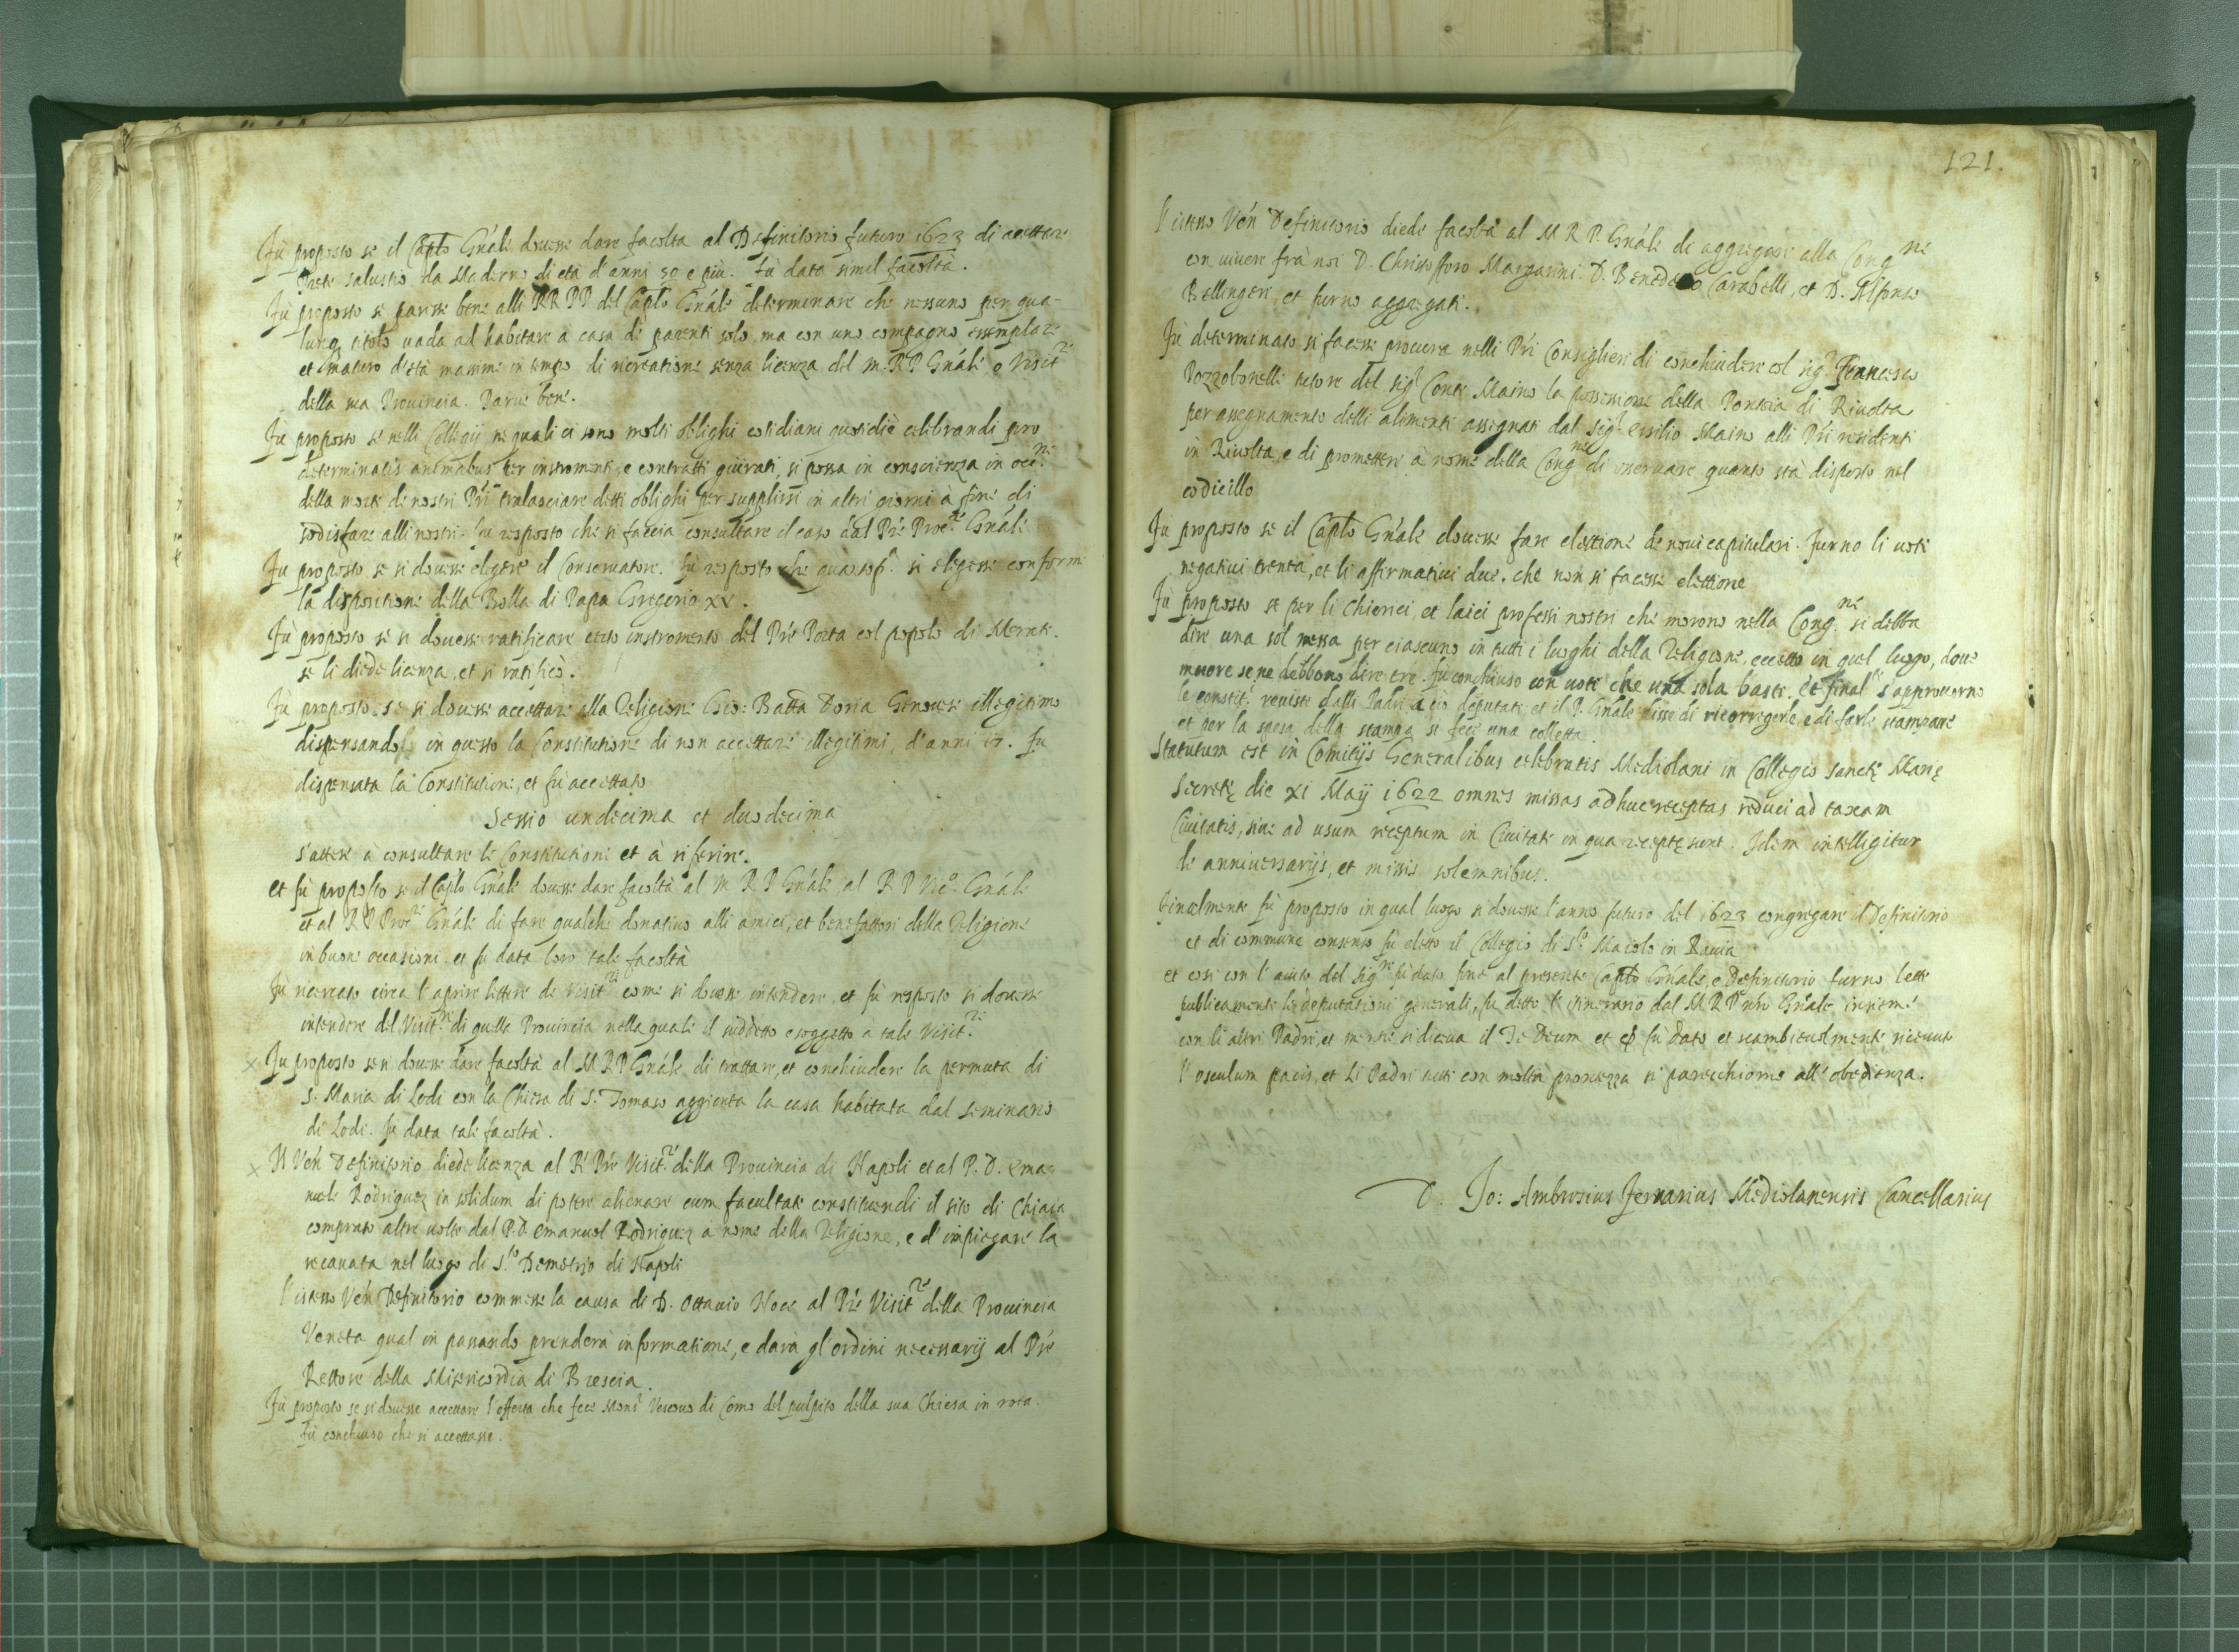 Fù proposto se il Capto Gnále douesse dare facolta al Definitorio futuro 1623 di accettare
Prete Salustio da Maderno di età d'anni 50 e più. Fù data simil facoltà.
Fù proposto se paresse bene alli RR PP del Capto Gnále determinare che nessuno per qua-
lunq titolo uada ad habitare a casa di parenti solo, ma con uno compagno essemplare
et maturo d'età massime in tempo di ricreatione senza licenza del m. R P Gnále o Visit.re
della sua Prouincia. Parue bene.
Fù proposto se nelli Collegij ne quali ci sono molti oblighi cotidiani quotidiè celebrandi pro
determinatis animabus per instromenti, e contratti giurati, si possa in conscienza in occ.ne
della morte de nostri Pri tralasciare detti oblighi per supplirsi in altri giorni à fine di
sodisfare alli nostri. Fu risposto che si faccia consultare il caso dal Prè Proc.re Gnále
Fu proposto se si douesse eligere il Conservatore. Fù risposto che si eligesse conforme
la dispositione della Bolla di Papa Gregorio XV.
Fù proposto se si douesse ratificare certo instromento del Prè Porta col popolo di Merate.
se li diede licenza, et si ratificò.
Fù proposto se si douesse accettare alla Religione Gio: Batta Doria Genouese illegitimo
dispensando in questo la Constitutione di non accettare illegitimi, d'anni 17. Fu
dispensata la Constitutione, et fù accettato
Sessio undecima et duodecima
s'attese à consultare le Constitutioni et à riferire.
et fù proposto se il Capto Gnále douesse dare facoltà al m R P Gnále al R P Vic.o Gnále
et al R P Proc.re Gnále di fare qualche donatiuo alli amici, et benefattori della Religione
in buone occasioni et fu data loro tale facoltà
Fù ricercato circa l'aprire lettere de Visit.ri come si douesse intendere, et fù risposto si douesse
intendere del Visit.re di quella Prouincia nella quale il suddetto e soggetto a tale Visit.re
x Fu proposto se si douesse dare facoltà al M R P Gnále di trattare, et conchiudere la permuta di
S. Maria di Lodi con la Chiesa di S. Tomaso aggionta la casa habitata dal Seminario
di Lodi. fu data tale facoltà.
x Il Vén Definitorio diede licenza al R Prè Visit.re della Prouincia di Napoli et al P. D. Ema-
nuele Rodriguez in solidum di potere alienare cum facultate constituendi il sito di Chiaia
comprato altre uolte dal P. D Emanuel Rodriguez a nome della Religione, e d'impiegare la
ricauata nel luogo di S.to Demetrio di Napoli
l'istesso Vén Definitorio commesse la causa di D. Ottauio Noce al Prè Visit.re della Prouincia
Veneta qual in passando prenderà informatione, e darà gl'ordini necessarij al Prè
Rettore della Misericordia di Brescia.
Fù proposto se si douesse accettare l'offerta che fece Mons.r Vescouo di Como del pulpito della sua Chiesa in
fù conchiuso che si accettasse.
121.
l'istesso Vén Definitorio diede facoltà al M R P. Gnále di aggregare alla Cong.ne
con uiuere frà noi D. Christofforo Margarini. D. Benedetto Carabelli, et D. Alfonso
Bellingeri, et furno aggregati.
Fù determinato si facesse procura nelli Pri Consiglieri di conchiudere col sig.r Francesco
Pozzobonelli tutore del sig.r Conte Maino la possessione della Ponteia di Riuolta
per assegnamento delli alimenti assegnati dal sig.r Ersilio Maino alli Pri residenti
in Riuolta, e di promettere à nome della Cong.ne di osseruare quanto stà disposto nel
codicillo
Fù proposto se il Capto Gnále douesse fare elettione de noui capitulari. furno li uoti
negatiui trenta, et li affirmatiui due. che non si facesse elettione
Fù proposto se per li Chierici, et laici professi nostri che morono nella Cong.ne si debba
dire una sol messa per ciascuno in tutti i luoghi della Religione, eccetto in quel luogo, doue
muore se ne debbono dire tre. fu conchiuso con uoti che una sola basti. et final.te s'approuorno
le constit.i reuiste dalli Padri à ciò deputati et il P. Gnále disse di ricorregerle, e di farle stampare
et per la spesa della stampa si fece una colletta.
Statutum est in Comitijs Generalibus celebratis Mediolani in Collegio sanctę Marię
Secretę die xi Maij 1622 omnes missas adhuc receptas reduci ad taxam
Ciuitatis, siue ad usum receptum in Ciuitate in qua receptę sunt. Idem intelligitur
de anniuersarijs, et missis solemnibus.
Finalmente fù proposto in qual luogo si douesse l'anno futuro del 1623 congregare il Definitorio
et di commune consenso fù eletto il Collegio di S.to Maiolo in Pauia
et così con l'aiuto del Sig.re fù dato fine al presente Capto Gnále, e Definitorio furno lette
publicamente le deputationi generali, fu detto l'itinerario dal M R P nro Gnále insieme
con li altri Padri, et mentre si diceua il Te Deum et fù dato et scambieuolmente riceuuto
l'osculum pacis, et Li Padri tutti con molta prontezza si parecchiorno all'obedienza.
D. Jo: Ambrosius Mediolanensis Cancellarius